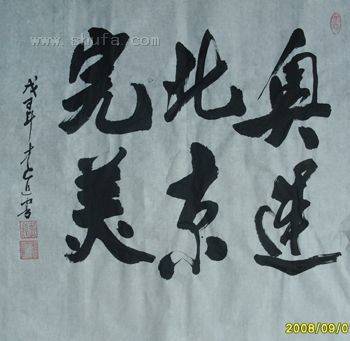 www.shufa.com
奥運
北京
完美
戊子年
2008/09/0